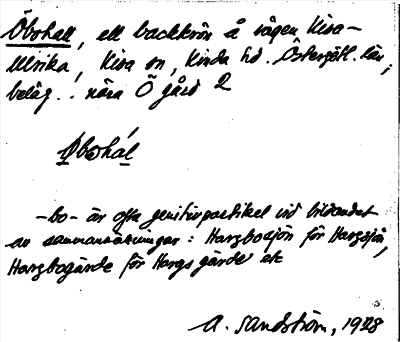 Öbohall, ett backkrön å vägen Kisa-
Ulrika, Kisa sn, Kinda hd. Östergötl. län;
beläg. . nära Ö gård 2
Øbohál
-bo- är ofta genitivpartikel vid bildandet
av sammansättningar: Hargbosjön för Hargsjön,
Hargbogärde för Hargs gärde etc
A. Sandström, 1928